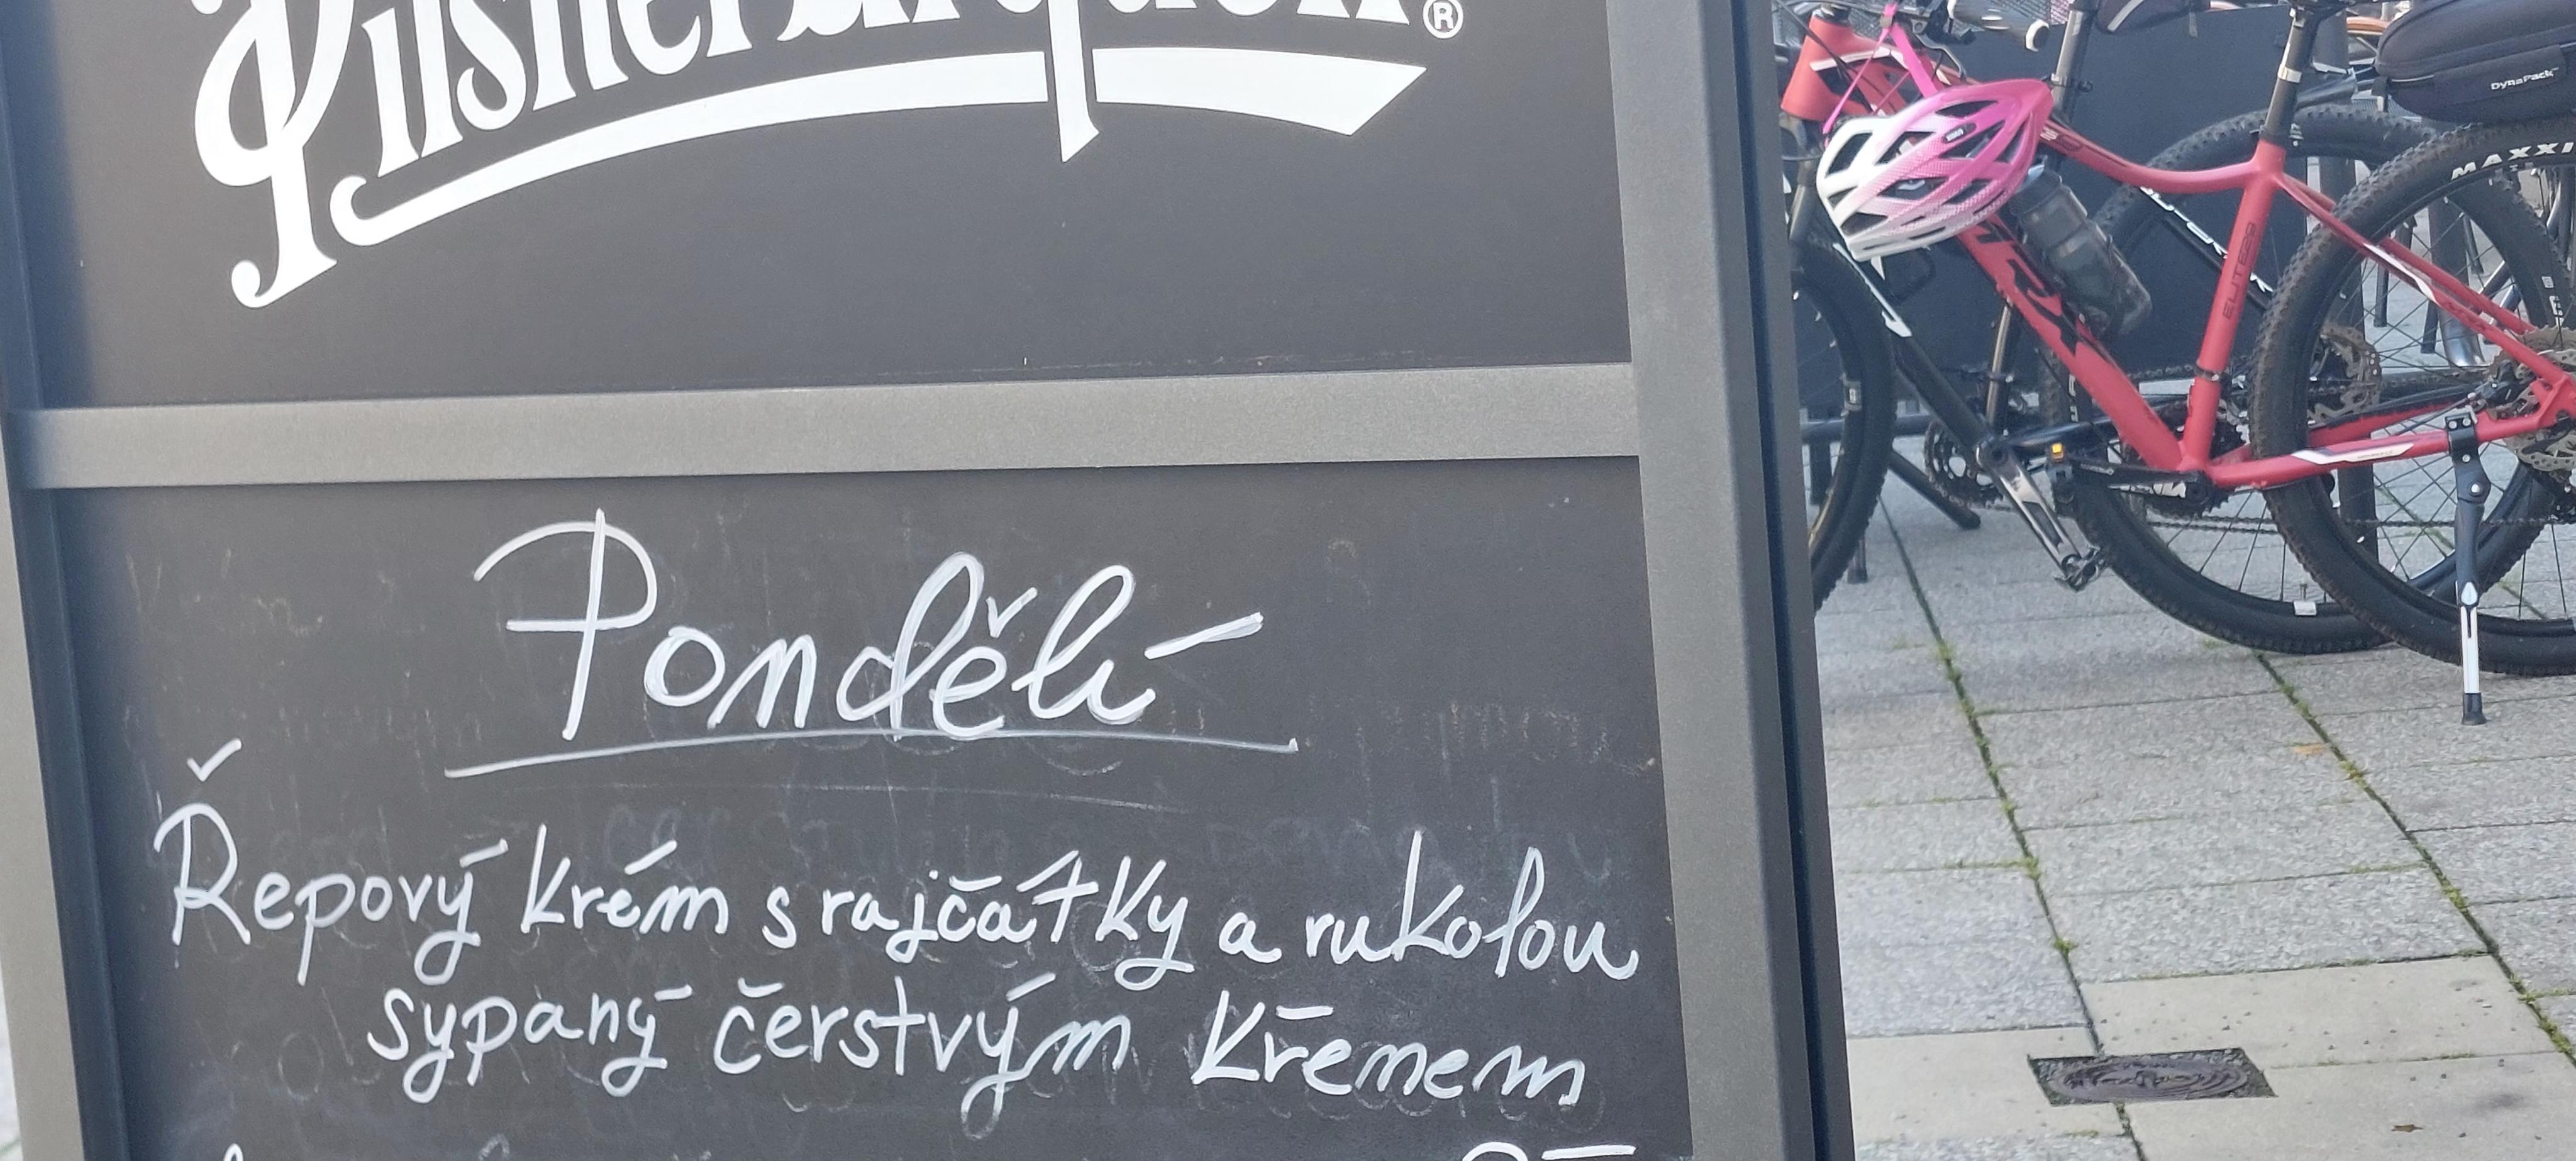 Pilsner Urquell ®
Pondělí
Řepový krém s rajčátky a rukolou
sypaný čerstvým křenem
DynaPack
MAXXI
ELITE29